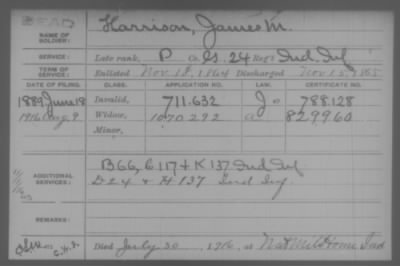 DEAD
NAME OF SOLDIER: Harrison, James M.
SERVICE: Late rank, P Co. G. 24 Reg't Ind. Inf
TERM OF SERVICE: Enlisted Nov. 18, 1864 Discharged Nov 15, 1865
DATE OF FILING. CLASS. APPLICATION NO. LAW. CERTIFICATE NO.
1889 June 18 Invalid, 711.632 J 788.128
1916 Aug. 9 Widow, 1070292 829960
Minor,
ADDITIONAL SERVICES: B 66, C 117 & K 137 Ind Inf
D 24 & H 137 Ind Inf.
REMARKS:
Died July 30, 1916, at Nat Mil Home Ind